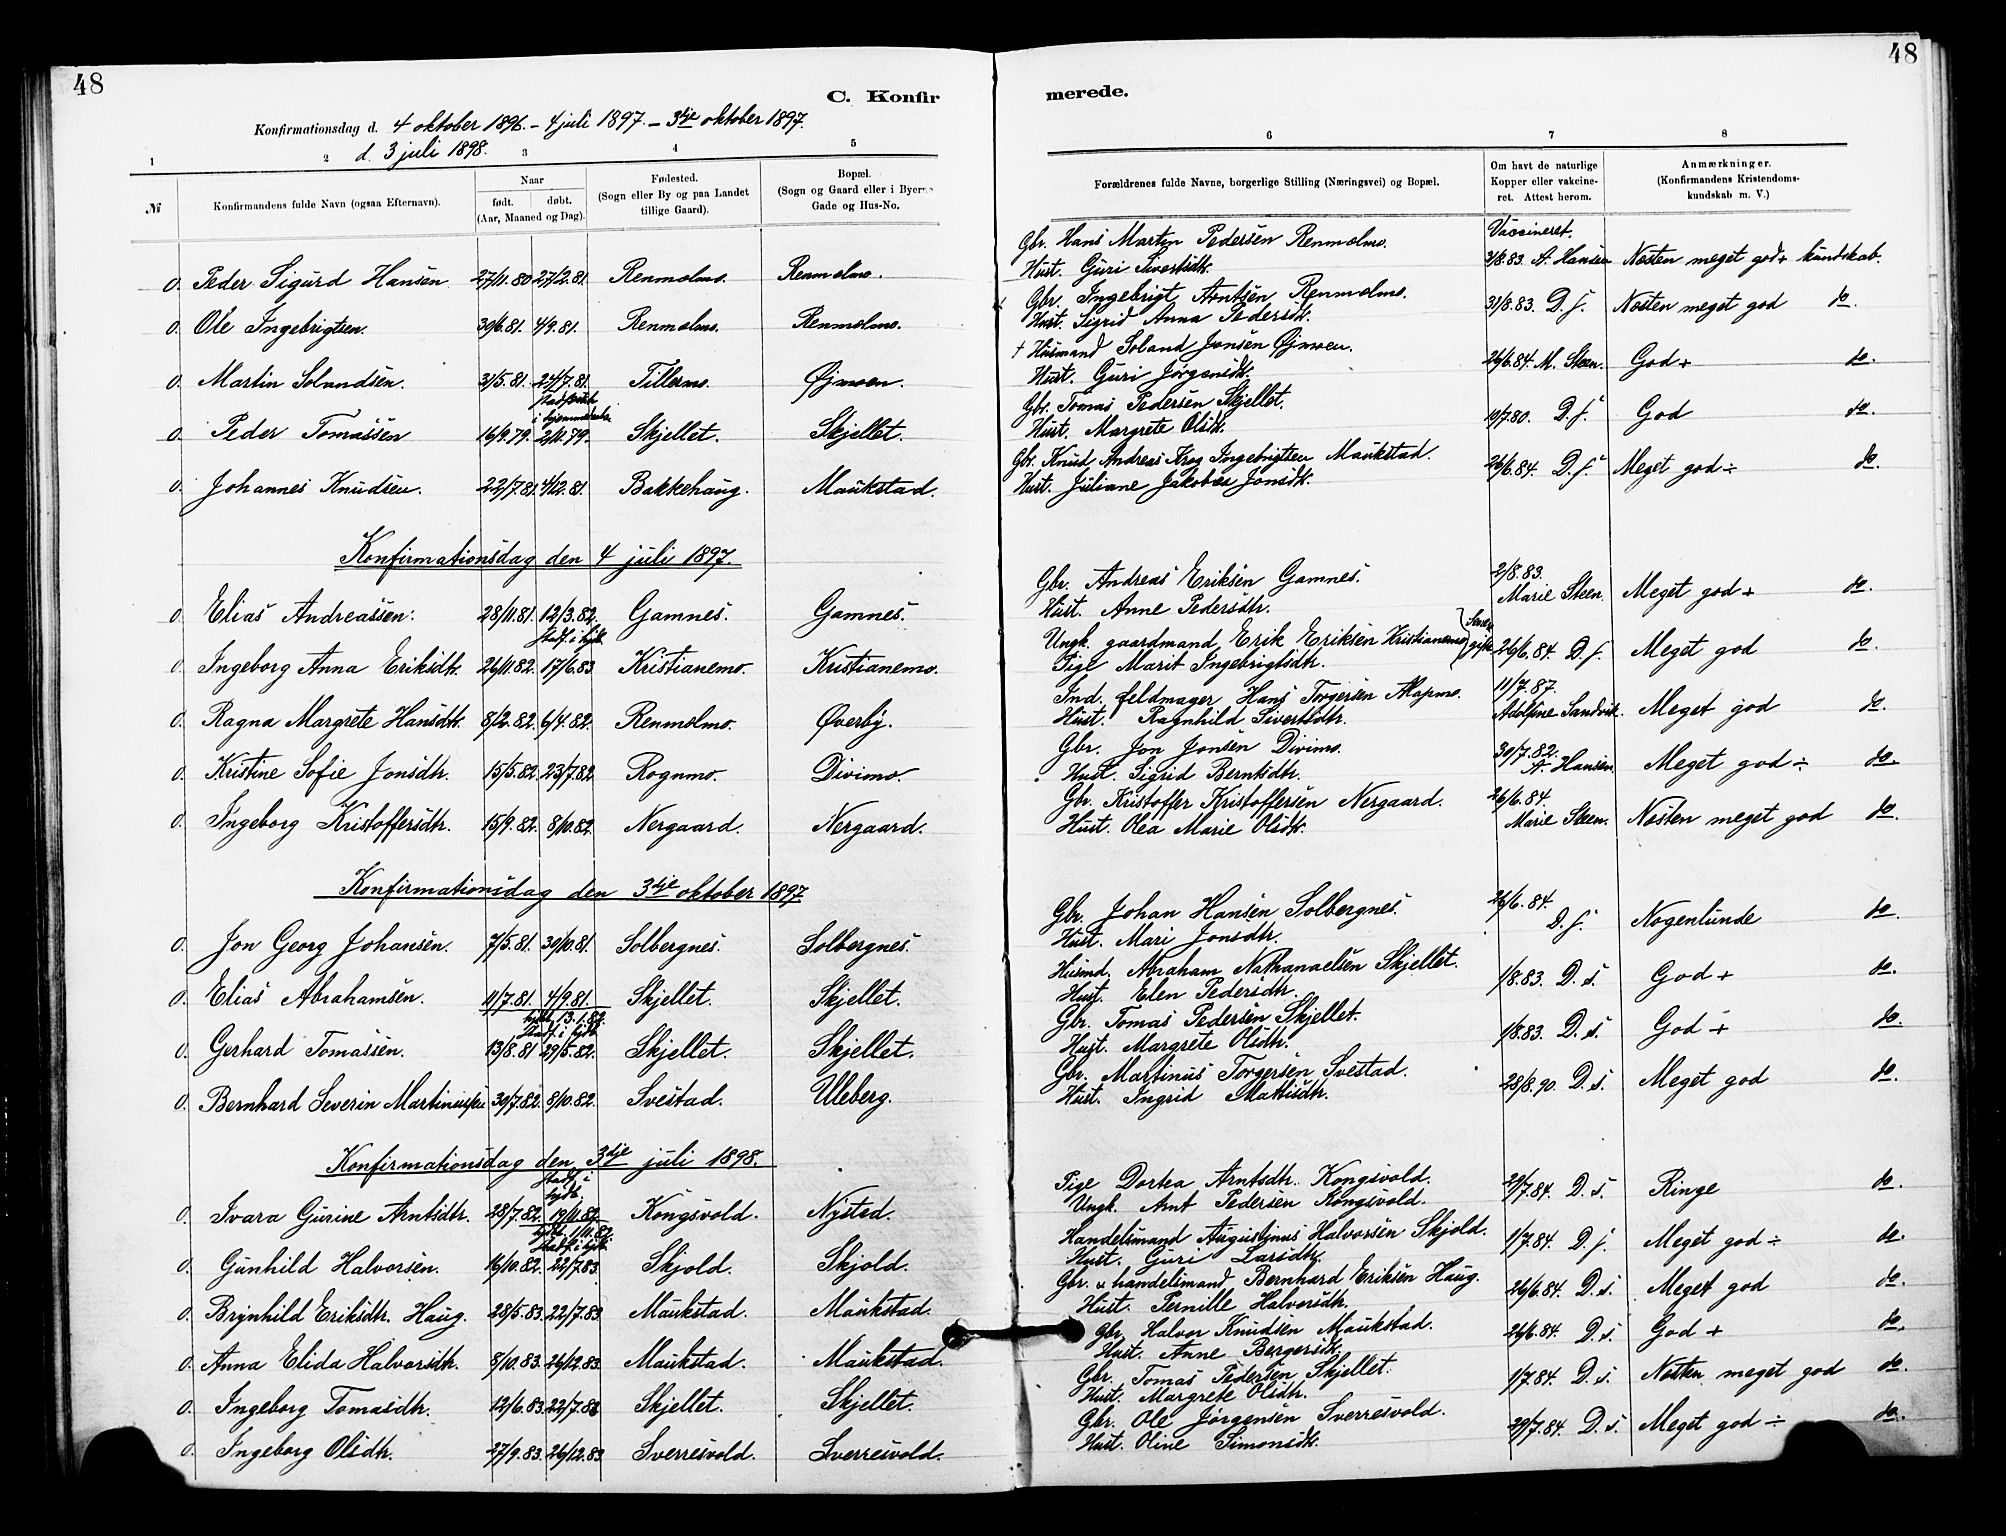 48
C. Konfir
Konfirmationsdag d. 4 oktober 1896. – 4 juli 1897 – 3die oktober 1897.
d. 3 juli 1898.
1 2 3 4 5
№
Konfirmandens fulde Navn (ogsaa Efternavn).
Naar
født. døbt.
(Aar, Maaned og Dag).
Fødested.
(Sogn eller By og paa Landet
tillige Gaard).
Bopæl.
(Sogn og Gaard eller i Byerne
Gade og Hus-No.
0. Peder Sigurd Hansen 27/11.80 27/2.81. Renmolmo. Renmolmo.
0. Ole Ingebrigtsen. 30/6.81. 4/9.81. Renmolmo. Renmolmo.
0. Martin Solandsen. 31/5.81. 24/7.81. Tillermo. Øjmoen.
0. Peder Tomassen 16/9.79. 2/11.79. Skjellet. Skjellet.
0. Johannes Knudsen. 22/7.81. 4/12.81. Bakkehaug. Maukstad.
Konfirmationsdag den 4 juli 1897.
0. Elias Andreassen. 28/11.81. 12/3.82. Gamnes. Gamnes.
stadf. i hjdk.
0. Ingeborg Anna Eriksdtr. 26/11.82. 17/6.83. Kristianemo. Kristianemo.
0. Ragna Margrete Hansdtr. 8/2.82. 6/4.82. Renmolmo. Øverby.
0. Kristine Sofie Jonsdtr. 15/5.82. 23/7.82. Rognmo. Divimo.
0. Ingeborg Kristoffersdtr. 15/9.82. 8/10.82. Nergaard. Nergaard.
Konfirmationsdag den 3die oktober 1897
0. Jon Georg Johansen. 7/5.81. 30/10.81. Solbergnes. Solbergnes.
0. Elias Abrahamsen. 11/7.81. 4/9.81. Skjellet. Skjellet.
13.1.82.
stadf. i hjdk.
0. Gerhard Tomassen. 13/8.81 29/5.82. Skjellet. Skjellet.
0. Bernhard Severin Martinussen 30/7.82. 8/10.82. Svestad. Uleberg.
Konfirmationsdag den 3dje juli 1898.
stadf. i
hjdk.
0. Ivara Gurine Arntsdtr. 28/7.82. 19/11.82. Kongsvold. Nysted.
1/11.82.
stadf. i hjdk.
0. Gunhild Halvorsen. 16/10.82. 22/7.83. Skjold. Skjold.
0. Brynhild Eriksdtr. Haug. 28/5.83. 22/7.83 Maukstad. Maukstad.
0. Anna Elida Halvorsdtr. 8/10.83. 26/12.83. Maukstad. Maukstad.
0. Ingeborg Tomasdtr. 12/6.83. 22/7.83 Skjellet. Skjellet.
0. Ingeborg Olsdtr. 27/9.83. 26/12.83 Sverresvold. Sverresvold.
48
merede.
6 7 8
Forældrenes fulde Navne, borgerlige Stilling (Næringsvei) og Bopæl.
Om havt de naturlige
Kopper eller vakcine-
ret. Attest herom.
Anmærkninger.
(Konfirmandens Kristendoms-
kundskab m. V.)
Vaccineret.
Gbr. Hans Martin Pedersen Renmolmo.
Hust. Guri Sivertsdtr. 2/8.83. A. Hansen Næsten meget god + kundskab.
Gbr. Ingebrigt Arntsen Renmolmo.
Hust. Sigrid Anna Pedersdtr. 31/8.83. D. f. Næsten meget god do.
† Husmand Soland Jonsen Øjmoen.
Hust. Guri Jørgensdtr. 26/6.84. M. Steen. God + do.
Gbr. Tomas Pedersen Skjellet.
Hust. Margrete Olsdtr. 10/7.80. D. f. God do.
Gbr. Knud Andreas Krog Ingebrigtsen Maukstad.
Hust. Juliane Jakobea Jonsdtr. 26/6.84. D. f. Meget god ÷ do.
Gbr. Andreas Eriksen Gamnes. 2/8.83.
Hust. Anne Pedersdtr. Marie Steen. Meget god + do.
Ungk. gaardmand Erik Eriksen Kristianemo
Pige Marit Ingebrigtsdtr. 26/6.84. D. f. Meget god do.
Ind. feldmager Hans Torgersen Alapmo. 11/7.87.
Hust. Ragnhild Sivertsdtr. Adolfine Sandvik. Meget god do.
Gbr. Jon Jonsen Divimo. 30/7.82.
Hust. Sigrid Berntsdtr. A. Hansen. Meget god ÷ do.
Gbr. Kristoffer Kristoffersen Nergaard. 26/6.84.
Hust. Olea Marie Olsdtr. Marie Steen. Næsten meget god do.
Gbr. Johan Hansen Solbergnes. 26/6.84.
Hust. Mari Jonsdtr. D. f. Nogenlunde do.
Husmd. Abraham Nathanaelsen Skjellet.
Hust. Elen Pedersdtr. 1/8.83. D. s. God + do.
Gbr. Tomas Pedersen Skjellet.
Hust. Margrete Olsdtr. 1/8.83. D. s. God ÷ do.
Gbr. Martinus Torgersen Svestad.
Hust. Ingrid Mattisdtr. 28/8.90. D. s. Meget god do.
Pige Dortea Arntsdtr. Kongsvold.
Ungk. Arnt Pedersen Kongsvold. 29/7.84. D. s. Ringe do.
Handelsmand Augustinus Halvorsen Skjold.
Hust. Guri Larsdtr. 1/7.84. D. f. Meget god ÷ do.
Gbr. & handelsmand Bernhard Eriksen Haug.
Hust. Pernille Halvorsdtr. 26/6.84. D. s. Meget god do.
Gbr. Halvor Knudsen Maukstad.
Hust. Anne Bergersdtr. 26/6.84. D. s. God + do.
Gbr. Tomas Pedersen Skjellet.
Hust. Margrete Olsdtr. 1/7.84. D. s. Næsten meget god do.
Gbr. Ole Jørgensen Sverresvold.
Hust. Oline Simonsdtr. 29/7.84. D. s. Meget god ÷ do.